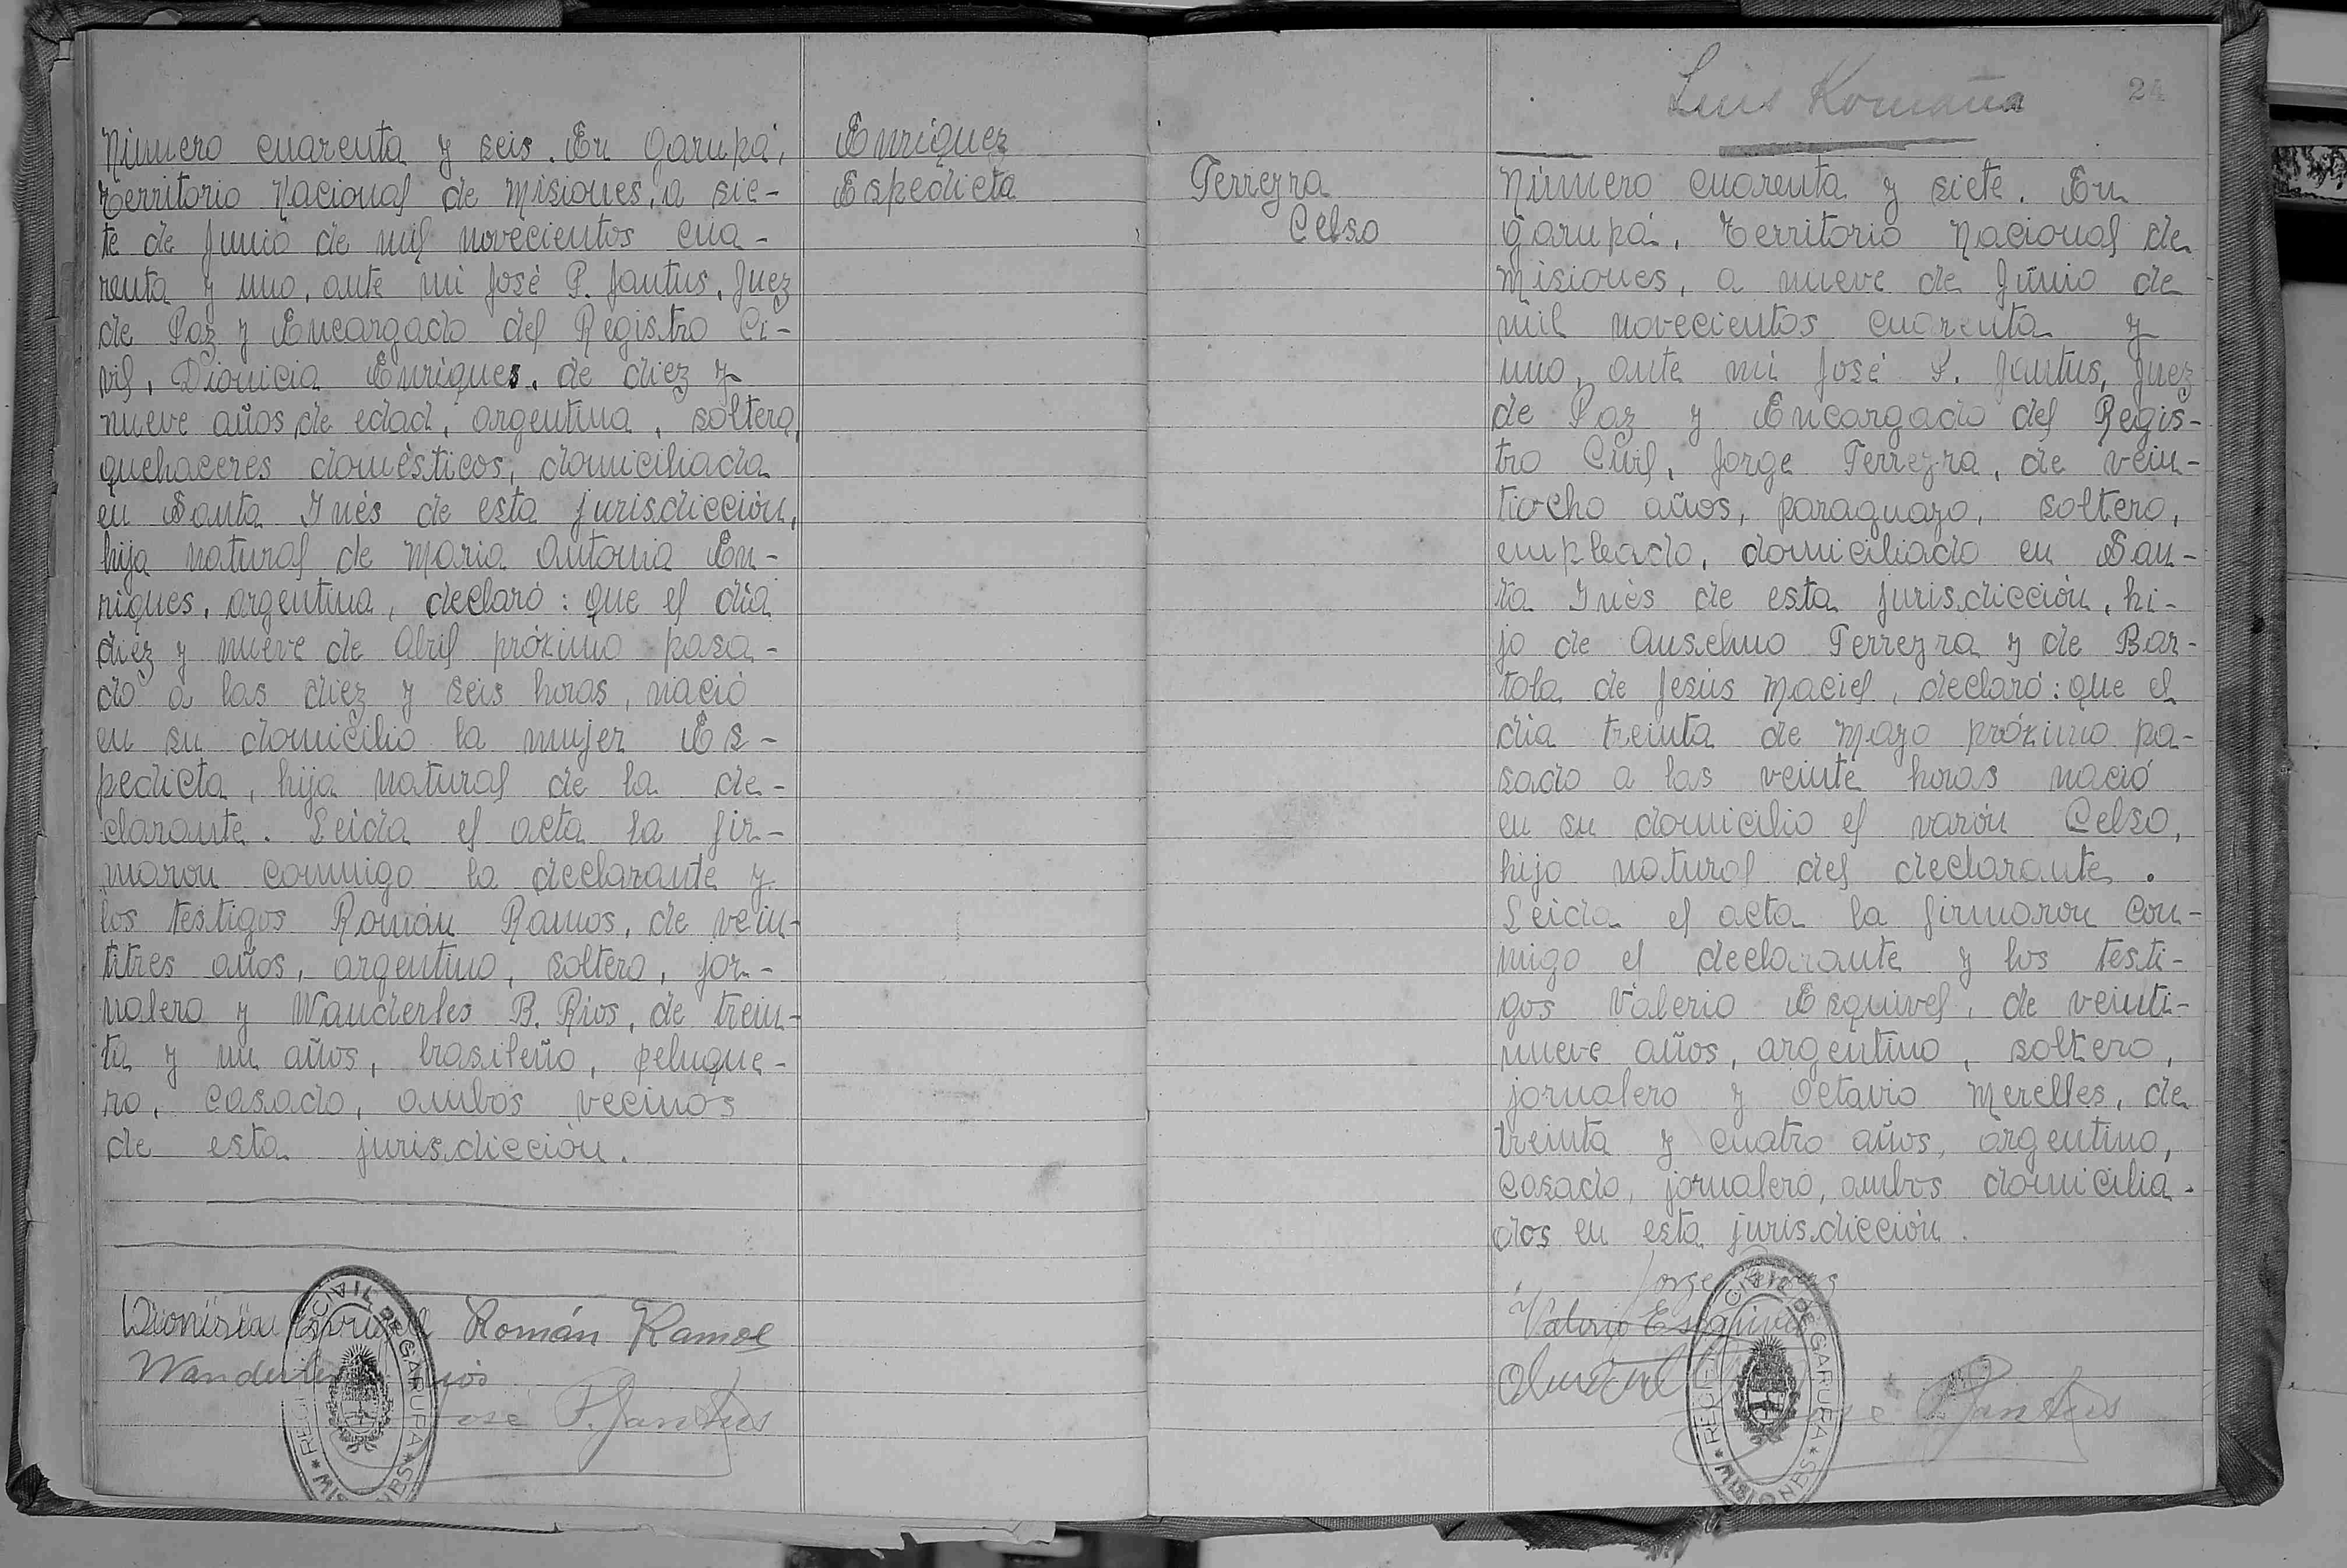 Número cuarenta y seis. En Garupá,
Territorio Nacional de Misiones, a sie-
te de Junio de mil novecientos cua-
renta y uno, ante mi José P. Jantus, Juez
de Paz y Encargado del Registro Ci-
vil, Dionicia Enriques, de diez y
nueve años de edad, argentina, soltera,
quehaceres domésticos, domiciliada
en Santa Inés de esta jurisdicción,
hija natural de Maria Antonia En-
riques, argentina, declaró: que el día
diez y nueve de Abril próximo pasa-
do a las diez y seis horas, nació
en su domicilio la mujer Es-
pedicta, hija natural de la de-
clarante. Leida el acta la fir-
maron conmigo la declarante y
los testigos Román Ramos, de vein-
titres años, argentino, soltero, jor-
nalero y Wanderles B. Rios, de trein-
ta y un años, brasileño, peluque-
ro, casado, ambos vecinos
de esta jurisdicción.
Dionisia Román Ramos
José P. Jantus
Enriquez
Espedicta
Ferreyra
Celso
Luis Romaña
24
Número cuarenta y siete. En
Garupá, Territorio Nacional de
Misiones, a nueve de Junio de
mil novecientos cuarenta y
uno, ante mi José P. Jantus, Juez
de Paz y Encargado del Regis-
tro Civil, Jorge Ferreyra, de vein-
tiocho años, paraguayo, soltero,
empleado, domiciliado en San-
ta Inés de esta jurisdicción, hi-
jo de Anselmo Ferreyra y de Bar-
tola de Jesús Maciel, declaró: que el
día treinta de Mayo próximo pa-
sado a las veinte horas nació
en su domicilio el varón Celso,
hijo natural del declarante.
Leida el acta la firmaron con-
migo el declarante y los testi-
gos Valerio Esquivel, de veinti-
nueve años, argentino, soltero,
jornalero y Octavio Merelles, de
treinta y cuatro años, argentino,
casado, jornalero, ambos domicilia-
dos en esta jurisdicción.
Jorge
Valerio Esquivel
P. Jantus